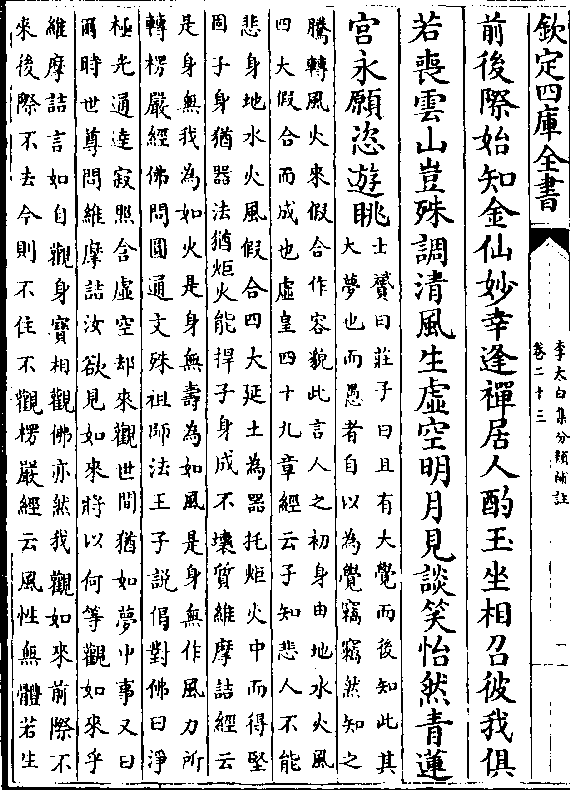 欽定四庫全書
李太白集分類補註
卷二十三
一
前後際始知金仙妙幸逢禪居人酌玉坐相召彼我俱
若喪雲山豈殊調清風生虛空明月見談笑怡然青蓮
宮永願恣遊眺
士贇曰莊子曰且有大覺而後知此其
大夢也而愚者自以為覺竊竊然知之
騰轉風火來假合作容貌此言人之初身由地水火風
四大假合而成也虛皇四十九章經云子知悲人不能
悲身地水火風假合四大延土為器托炬火中而得堅
固子身猶器法猶炬火能捍子身成不壞質維摩詰經云
是身無我為如火是身無壽為如風是身無作風力所
轉楞嚴經佛問圓通文殊祖師法王子說偈對佛曰淨
極光通達寂照含虛空却來觀世間猶如夢中事又曰
爾時世尊問維摩詰汝欲見如來將以何等觀如來乎
維摩詰言如自觀身寶相觀佛亦然我觀如來前際不
來後際不去今則不住不觀楞嚴經云風性無體若生